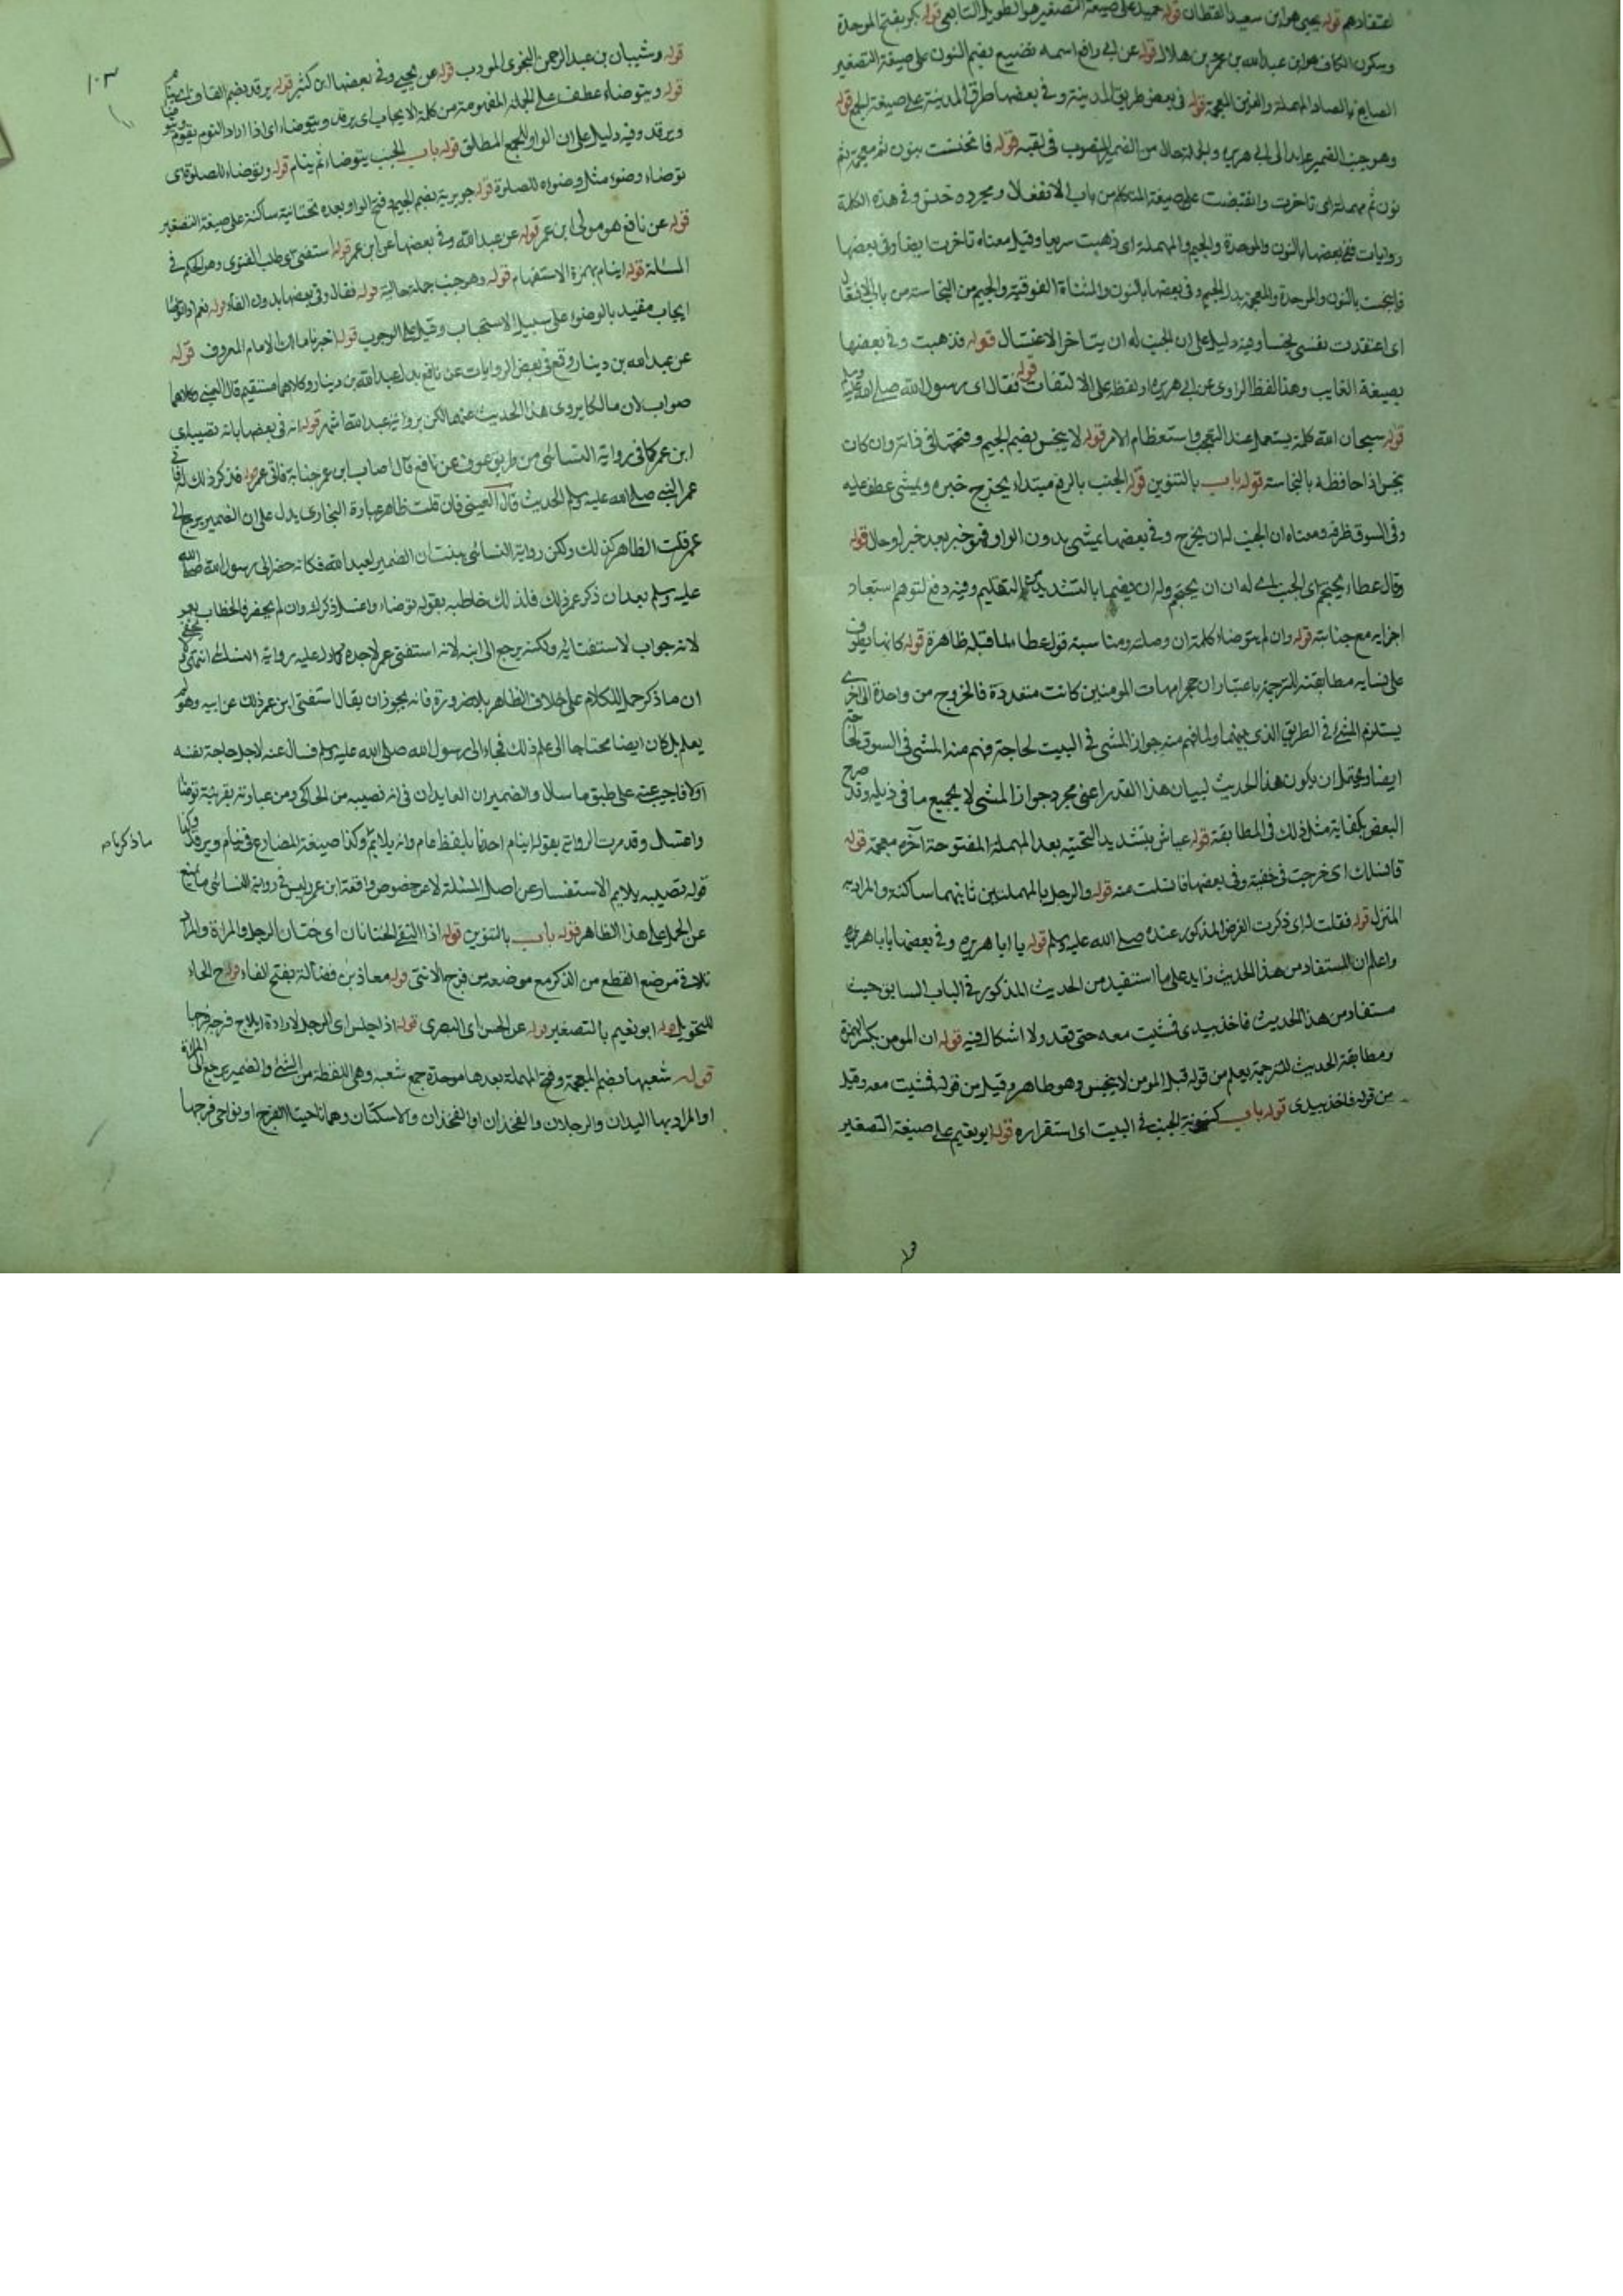 اعتقادهم قوله يحيى هو ابن سعيد القطان قوله حميد على صيغة التصغير هو الطويل التابعي قوله بكر بفتح الموحدة
وسكون الكاف هو ابن عبد الله بن عمرو بن هلال قوله عن ابي رافع اسمه نفيع بضم النون على صيغة التصغير
الصايغ بالصاد المهملة والغين المعجمة قوله في بعض طريق المدينة وفي بعضها طرق المدينة على صيغة الجمع قوله
وهو جنب الضمير عايد الى ابي هريرة والجملة حال من الضمير المنصوب في لقيه قوله فانخنست بنون ثم معجمة ثم
نون ثم مهملة اى تاخرت وانقبضت على صيغة المتكلم من باب الانفعال ومجرده خنس وفي هذه الكلمة
روايات ففي بعضها بالنون والموحدة والجيم والمهملة اى ذهبت سريعا وقيل معناه تاخرت ايضا وفي بعضها
فانبخست بالنون والموحدة والمعجمة بدل الجيم وفي بعضها بالنون والمثناة الفوقية والجيم من النجاسة من باب الافتعال
اى اعتقدت نفسى نجسا وفيه دليل على ان الجنب له ان يتاخر الاغتسال قوله فذهبت وفي بعضها
بصيغة الغايب وهذا لفظ الراوى عن ابي هريرة او لفظه على الالتفات قوله فقال اى رسول الله صلى الله عليه وسلم
قوله سبحان الله كلمة يستعمل عند التعجب واستعظام الامر قوله لا ينجس بضم الجيم وفتحها وان كان
نجس اذا حافظه بالنجاسة قوله باب بالتنوين قوله الجنب بالرفع مبتداء يخرج خبره ويمشى عطف عليه
وفي السوق ظرفه ومعناه ان الجنب له ان يخرج وفي بعضها يمشى بدون الواو فهو خبر بعد خبر او حال قوله
وقال عطاء يحتجم اى الجنب اى له ان يحتجم وله ان يضمها بالتشديد التقليم وفيه دفع لتوهم استبعاد
اجزايه مع جنابته قوله وان لم يتوضاء كلمة ان وصلية ومناسبة قول عطاء لما قبله ظاهرة قوله كان يطوف
على نسايه مطابقته للترجمة باعتبار ان حجر امهات المومنين كانت متعددة فالخروج من واحدة الى اخرى
يستلزم المشى في الطريق الذى بينهما ولما فهم منه جواز المشى في البيت لحاجة فهم منه المشى في السوق
ايضا ويحتمل ان يكون هذا الحديث لبيان هذا القدر اعنى مجرد جواز المشى لا لجميع ما في ذيله وقد صرح
البعض بكفاية مثل ذلك في المطابقة قوله عياش بتشديد التحتية بعد المهملة المفتوحة آخره معجمة قوله
فانسللت اى خرجت في خفية وفي بعضها فانسلت منه قوله والرحل بالمهملتين ثانيهما ساكنة والمراد به
المنزل قوله فقلت له اى ذكرت الغرض المذكور عنده صلى الله عليه وسلم قوله يا ابا هريرة وفي بعضها يابا هريرة
واعلم ان المستفاد من هذا الحديث زايد على ما استفيد من الحديث المذكور في الباب السابق حيث
مستفاد من هذا الحديث فاخذ بيدى فمشيت معه حتى قعد ولا اشكال فيه قوله ان المومن بكسر الهمزة
ومطابقة الحديث للترجمة يعلم من قوله قبل المومن لا ينجس وهو طاهر وقيل من قوله فمشيت معه وقيل
من قوله فاخذ بيدى قوله باب كينونة الجنب في البيت اى استقراره قوله ابو نعيم على صيغة التصغير
قوله وشيبان بن عبد الرحمن النحوى المودب قوله عن يحيى وفي بعضها ابن كثير قوله يرقد بضم القاف
قوله ويتوضاء عطف على الجملة المفهومة من كلمة الايجاب اى يرقد ويتوضاء اى اذا اراد النوم يقوم
ويرقد وفيه دليل على ان الواو للجمع المطلق قوله باب الجنب يتوضاء ثم ينام قوله وتوضاء للصلوة اى
توضاء وضوء مثل وضوئه للصلوة قوله جويرية بضم الجيم وفتح الواو بعده تحتانية ساكنة على صيغة التصغير
قوله عن نافع هو مولى ابن عمر قوله عن عبد الله وفي بعضها عن ابن عمر قوله استفتى اى طلب الفتوى وهو الحكم في
المسئلة قوله اينام بهمزة الاستفهام قوله وهو جنب جملة حالية قوله فقال وفي بعضها بدون الفاء قوله نعم اذا توضا
ايجاب مقيد بالوضوء على سبيل الاستحباب وقيل على الوجوب قوله اخبرنا مالك الامام المعروف قوله
عن عبد الله بن دينار وقع في بعض الروايات عن نافع بدل عبد الله بن دينار وكلاهما مستقيم قال العينى وكلاهما
صواب لان مالكا يروى هذا الحديث عنهما لكن برواية عبد الله اشهر قوله انه في بعضها بانه تصيبه اى
ابن عمر كما في رواية النسائى من طريق عوف عن نافع قال اصاب ابن عمر جنابة فاتى عمر فذكر ذلك له فاتى
عمر النبي صلى الله عليه وسلم الحديث قال العينى فان قلت ظاهر عبارة البخارى يدل على ان الضمير يرجع الى
عمر قلت الظاهر كذلك ولكن رواية النسائى بينت ان الضمير لعبد الله فكانه حضر الى رسول الله صلى الله
عليه وسلم بعد ان ذكر عمر ذلك فلذلك خاطبه بقوله توضاء واغسل ذكرك وان لم يحضر فالخطاب لعمر
لانه جواب لاستفتائه ولكنه يرجع الى ابنه لانه استفتى عمر لاجله كما دل عليه رواية النسائى انتهى
ان ما ذكر حمل للكلام على خلاف الظاهر بلا ضرورة فانه يجوز ان يقال استفتى ابن عمر ذلك عن ابيه وهو لم
يعلم بل كان ايضا محتاجا الى علم ذلك فجاء الى رسول الله صلى الله عليه وسلم فسال عنه لاجل حاجة نفسه
اولا فاجيب عنه على طبق ما سال والضميران العايدان في انه تصيبه من الحاكى ومن عبارته بقرينة توضا
واغسل وقد مرت الرواية بقوله اينام احدنا بلفظ عام وانه يلايم وكذا صيغة المضارع في ينام ويرقد وكذا
ماذكرناه
قوله تصيبه يلايم الاستفسار عن اصل المسئلة لا عن خصوص واقعة ابن عمر وليس في رواية النسائى ما يمنع
عن الحمل على هذا الظاهر قوله باب بالتنوين قوله اذا التقى الختانان اى ختان الرجل والمراة والمراد
تلاقى موضع القطع من الذكر مع موضعه من فرج الانثى قوله معاذ بن فضالة بفتح الفاء قوله ح الحاء
للتحويل قوله ابو نعيم بالتصغير قوله عن الحسن اى البصرى قوله اذا جلس اى الرجل لارادة ايلاج فرجه فرجها
قوله شعبها بضم المعجمة وفتح المهملة بعدها موحدة جمع شعبة وهى القطعة من الشئ والضمير يرجع الى المراة
والمراد بها اليدان والرجلان والفخذان او الفخذان والاسكتان وهما ناحيتا الفرج او نواحى فرجها
١٠٣